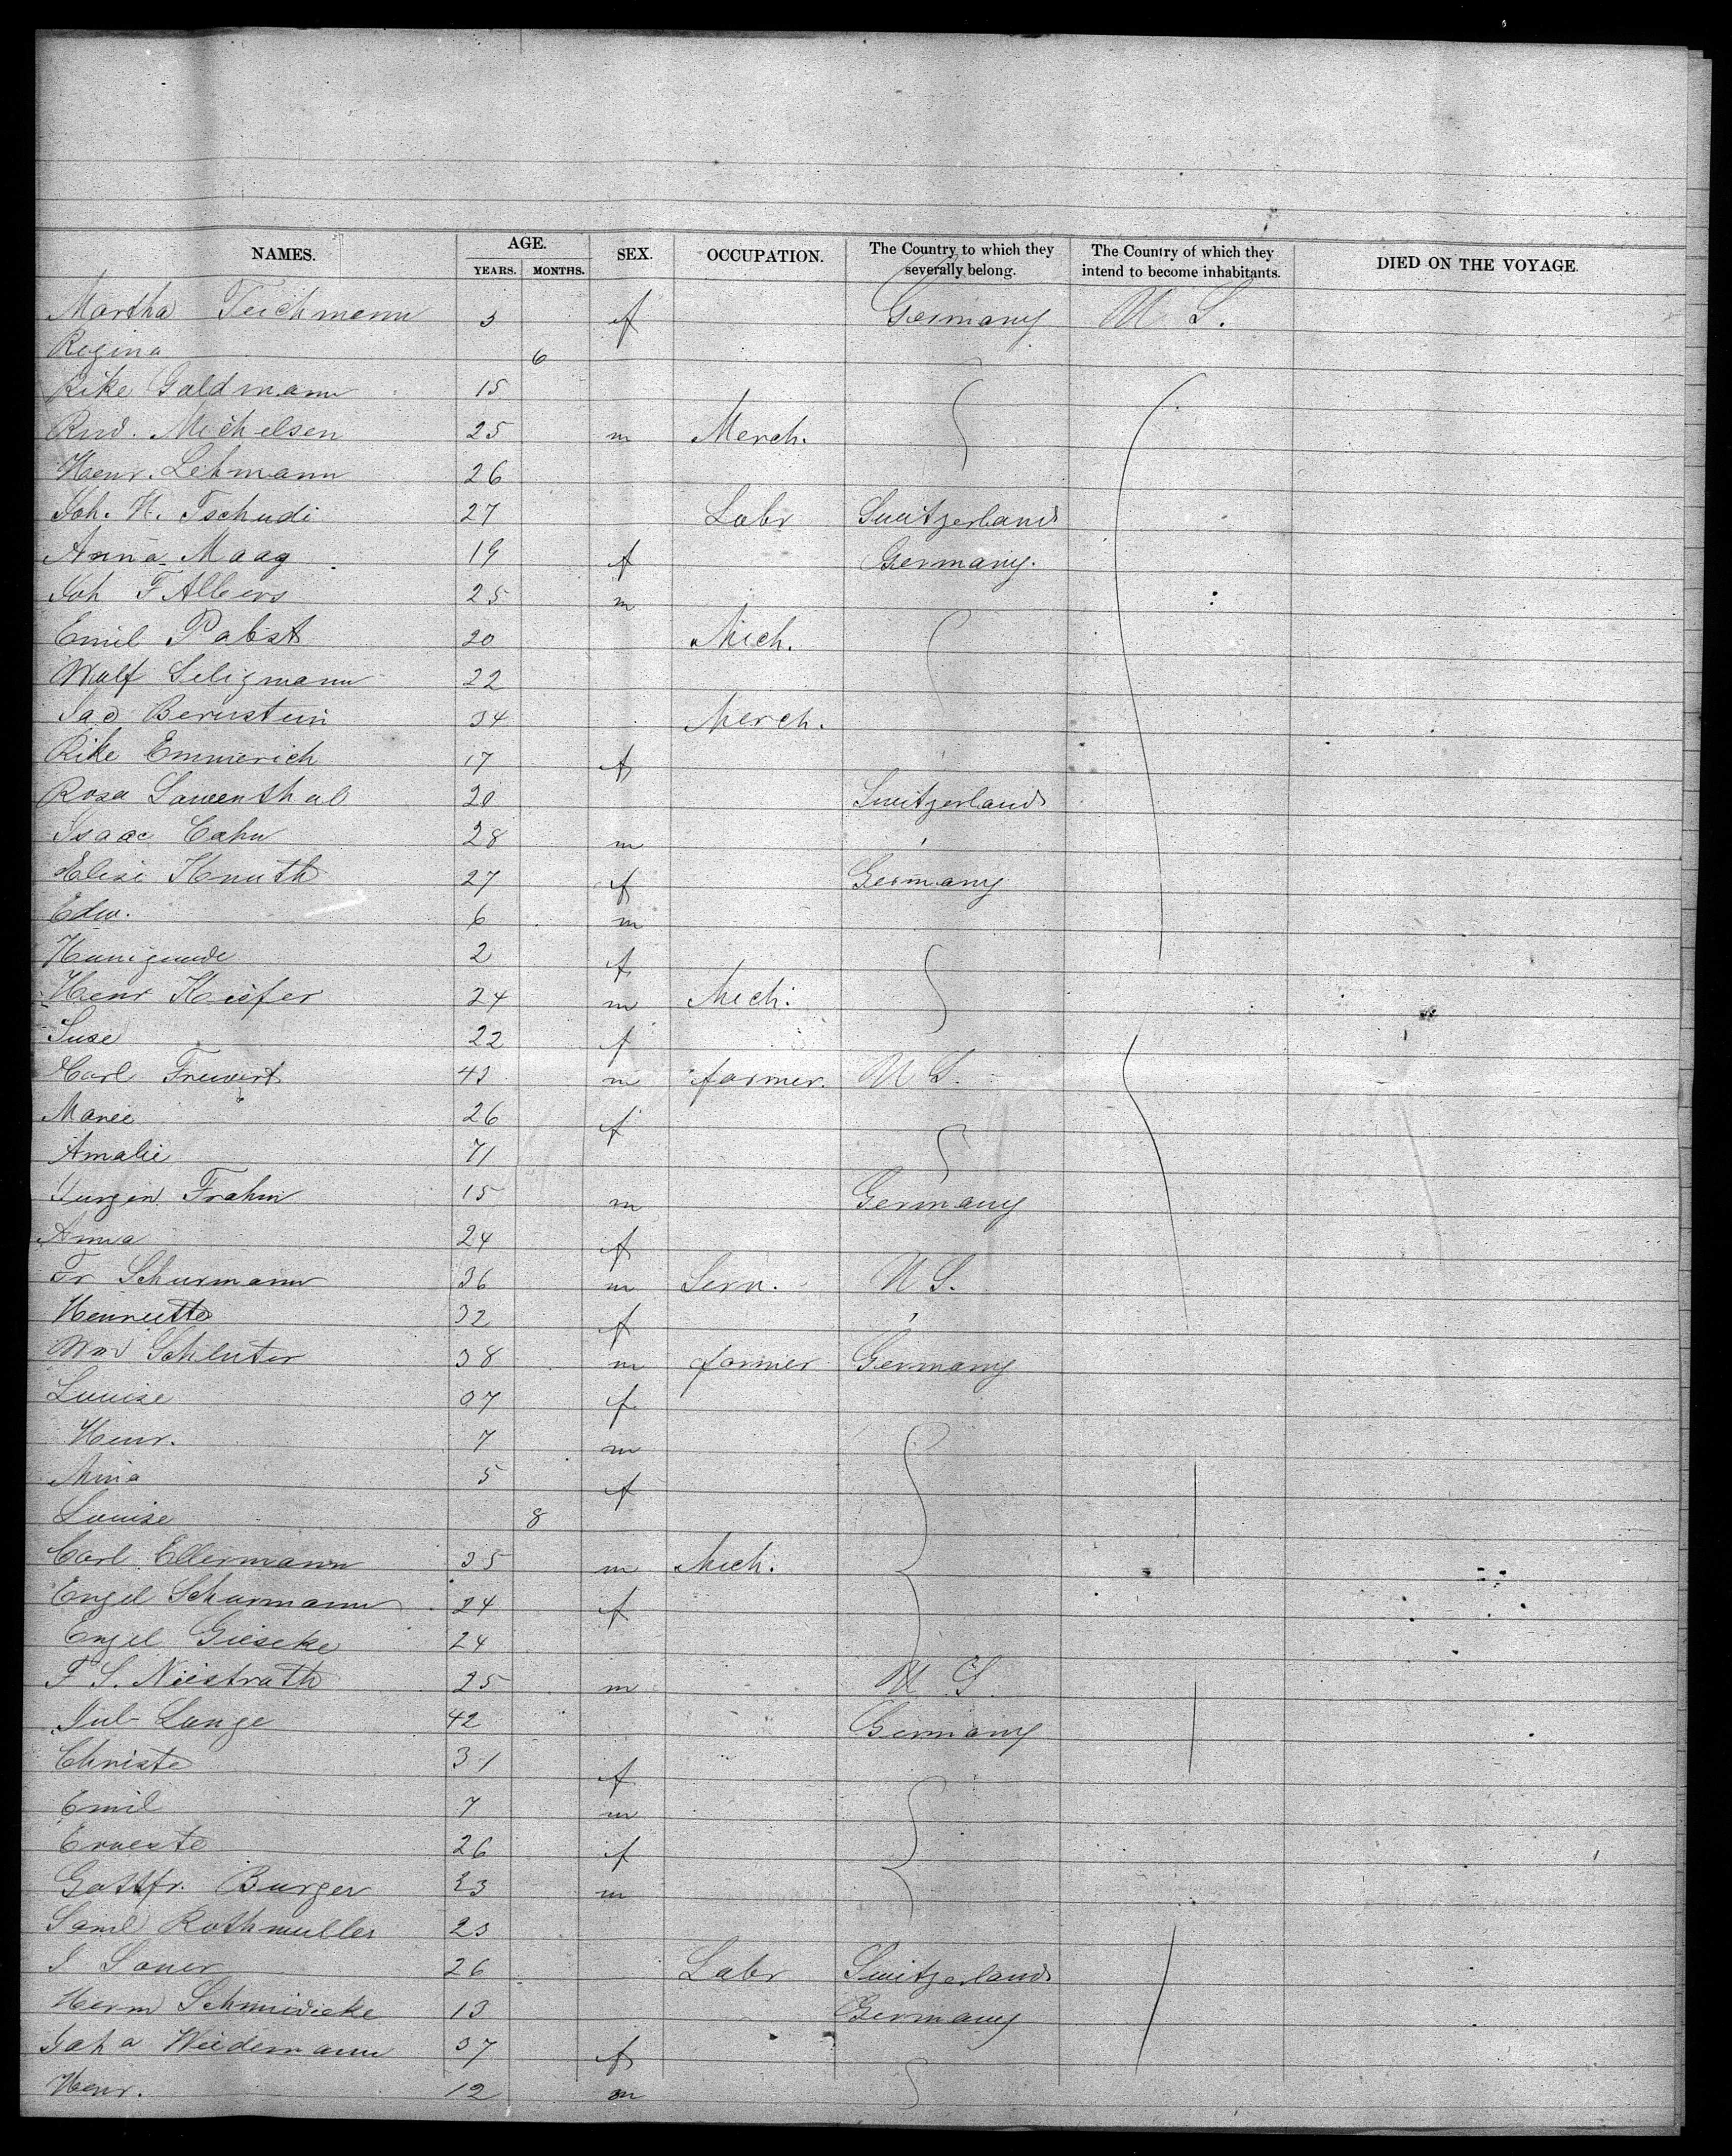 NAMES. AGE. YEARS. MONTHS. SEX. OCCUPATION. The Country to which they severally belong. The Country of which they intend to become inhabitants. DIED ON THE VOYAGE.
Martha Teichmann 3 f Germany U S.
Regina 6
Rike Goldmann 15
Rud. Michelsen 25 m Merch.
Henr. Lehmann 26
Joh. H. Tschudi 27 Labr Switzerland
Anna Maag 19 f Germany.
Joh F Albers 25 m
Emil Pabst 20 Mech.
Wolf Seligmann 22
Isad Bernstein 34 Merch.
Rike Emmerich 17 f
Rosa Lowenthal 20 Switzerland
Isaac Cahn 28 m
Elise Knuth 27 f Germany
Edw. 6 m
Kunigunde 2 f
Henr Kiefer 24 m Mech.
Suse 22 f
Carl Frewert 43 m farmer. U S.
Marie 26 f
Amalie 71
Jurgen Frahm 15 m Germany
Anna 24 f
Fr Schurmann 36 m Serv. U S.
Henriette 32 f
Wm Schluter 38 m farmer Germany
Louise 37 f
Henr. 7 m
Mina 5 f
Louise 8
Carl Ellermann 35 m Mech.
Engel Schurmann 24 f
Engel Gieseke 24
F S. Niestrath 25 m U S
Jul Lange 42 Germany
Christe 31 f
Emil 7 m
Erneste 26 f
Gottfr. Burger 23 m
Saml Rothmuller 23
J Soner 26 Labr Switzerland
Herm Schmidicke 13 Germany
Joha Wiedemann 37 f
Henr. 12 m